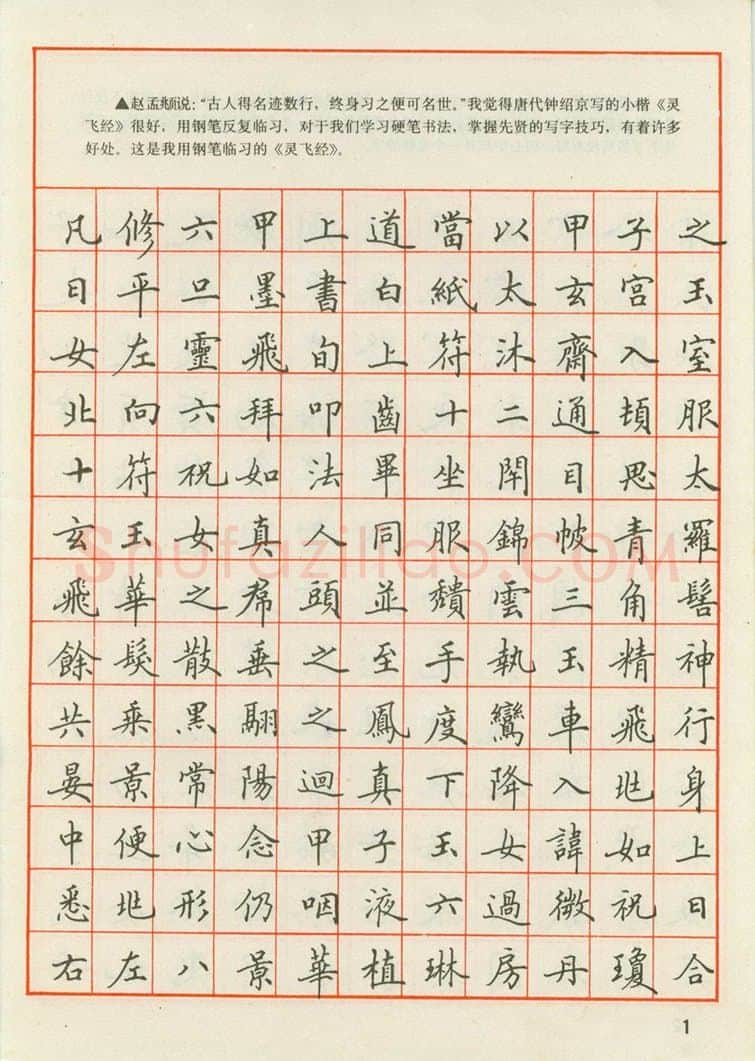 ▲赵孟頫说：“古人得名迹数行，终身习之便可名世。”我觉得唐代钟绍京写的小楷《灵
飞经》很好，用钢笔反复临习，对于我们学习硬笔书法，掌握先贤的写字技巧，有着许多
好处。这是我用钢笔临习的《灵飞经》。
凡修六甲上道當以甲子之
日平旦墨書白紙太玄宮玉
女左靈飛旬上符沐齋入室
北向六拜叩齒十二通頓服
十符祝如法畢坐閇目思太
玄玉女真人同服錦帔青羅
飛華之帬頭並穨雲三角髻
餘髮散垂之至手執玉精神
共乘黑翮之鳳度鸞車飛行
晏景常陽迴真下降入兆身
中便心念甲子玉女諱如上
悉兆形仍咽液六過微祝曰
右左八景華植琳房丹瓊合
Shufaziliao.COM
1